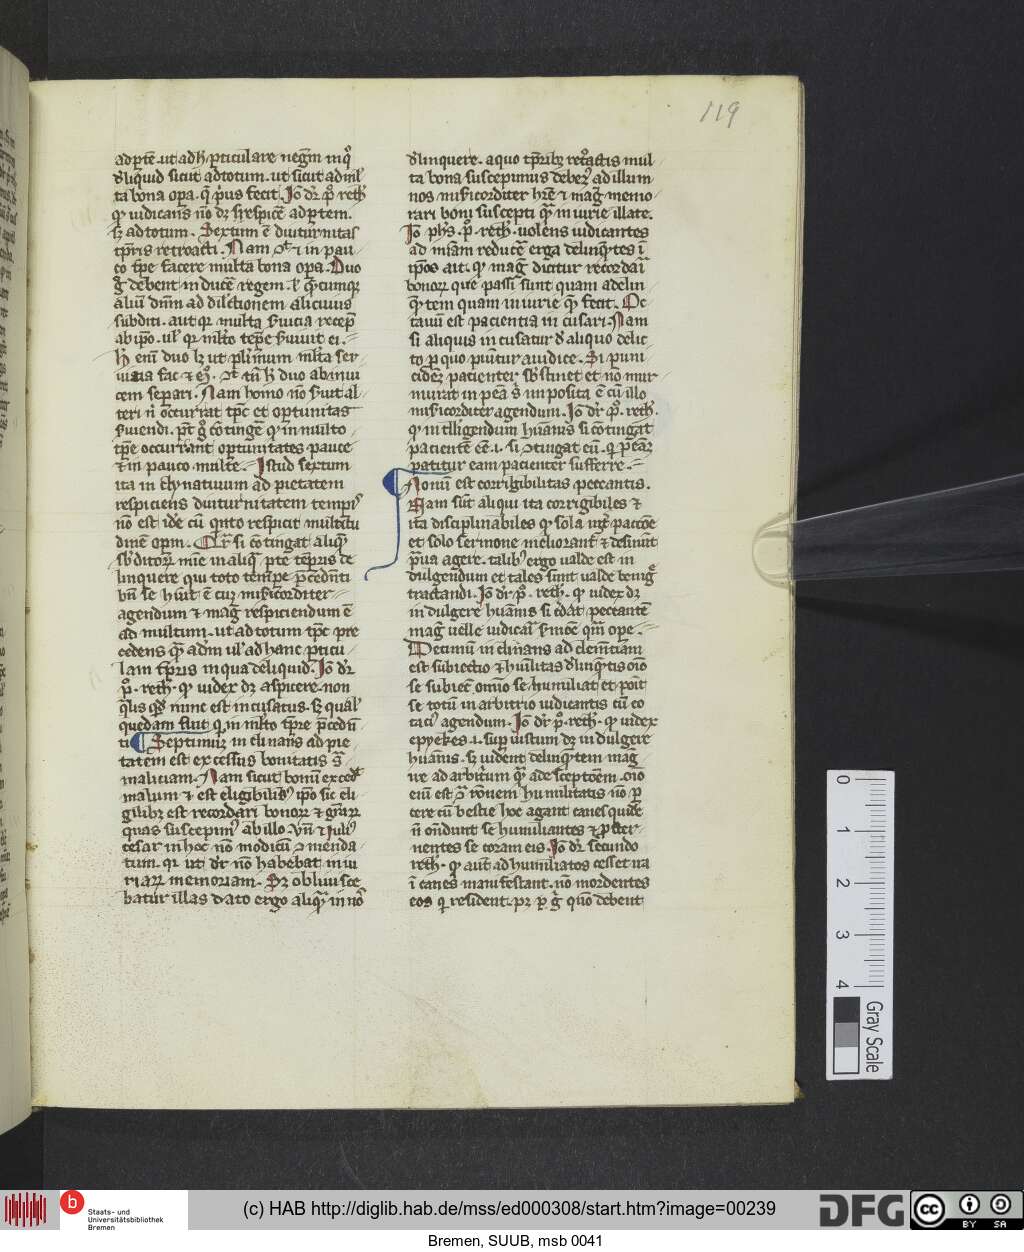 119
ad ptē. ut ad h̅ pticulare negm̄ in q°
d̅liquid sicut ad totum. ut sicut ad ml̅
ta bona opa. q̄ p̓us fecit. Iō dr̄ p° reth̓
qꝫ iudicans nō dꝫ respicē ad ptem.
sꝫ ad totum. Sextum ē diuturnitas
tp̄ris retroacti. Nam
co tp̄e facere multa bona opa. Duo
g̊ debent inducē regem. l̓ q̄cumqꝫ
aliū dn̄m ad dilctionem alicuius
subditi. aut qꝛ multa s̓uicia recep̄
ab ip̄o. ul̓ qꝛ ml̓to tēpe s̓uiuit ei.
h̄ enī duo lꝫ ut pl̓imum ml̓ta ser
uicia fac̄
cem separi. Nam homo nō s̓uit al
teri n̄ occurrat tp̄c et optunitas
s̓uiendi. p̄t g̊ cōtinge̅ qꝫ in multo
tp̄e occurrant optunitates pauce
⁊ in pauco multe. Istud sextum
ita inclynatiuum ad pietatem
respiciens diuturnitatem tempis
nō est idē cū qnto respicit multitu
dinē opm. Qr̄ si cōtingat aliqꝫ
sb̓ditoꝝ
linquere qui toto tempe p̄cedn̄ti
bn̄ se huit ē cuꝫ misicorditer
agendum ⁊ mag̅ respiciendum ē
ad multum. ut ad totum tp̄c pre
cedens q̄ ad m̄ ul̓ ad hanc pticu
lam tp̄ris in qua deliquid. Iō dr̄
p°. reth̓. qꝫ iudex dꝫ aspicere. non
q̄lis qd̄ nunc est incusatus. sꝫ qual̓
quedam fuit qꝫ in ml̓to tp̄re p̄cedn̄
ti ¶ Septimuꝫ inclinans ad pie
tatem est excessus bonitatis s̄
maliciam. Nam sicut bonū exced̓
malum ⁊ est eligibiliꝰ ip̄o sic eli
gilibꝫ est recordari bonoꝝ ⁊ gr̄aꝝ
quas suscepimꝰ ab illo. Vn̄ ⁊ iuliꝰ
cesar in hoc nō modicū ꝯmenda
tum. qꝛ ut dr̄ nō habebat iniu
riaꝝ memoriam. Sꝫ obliuisce
batur illas dato ergo aliqꝫ in nō
d̅linquere. a quo tp̄ribꝫ ret°actis mul
ta bona suscepimus debeꝰ ad illum
nos misicorditer hr̄e ⁊ mag̅ memo
rari boni suscepti q̄ iniurie illate.
Iō ph̄s. p°. reth̓. uolens iudicantes
ad miam reducē erga delinq̄tes ī
ip̄os ait. qꝫ mag̅ dicitur recordaī
bonoꝝ que passi sunt quam a delin
q̄tem quam iniurie q̄ fecit. Oc
tauū est pacientia incusari. Nam
si aliquis incusatur d̓ aliquo delic
to p̱ quo piuntur a iudice. Si puni
cidet̓ patienter sb̓stinet et nō mur
murat in pea s̄ imposita ē cū illo
misicorditer agendum. Iō dr̄ p°. reth̓.
qꝫ intlligendum huāis si cōtingat
pacientē eē .i. si ꝯtingat eū.
patitur eam pacienter sufferre.
Nonū est corrigibilitas peccantis.
Nam sūt aliqui ita corrigibiles ⁊
ita disciplinabiles qꝫ sola
et solo sermone meliorant̓ ⁊ desinūt
praua agere. talibꝰ ergo ualde est in
dulgendum et tales sunt ualde benig̅
tractandi. Iō dr̄ p°. reth̓. qꝫ iudex dꝫ
indulgere huāis si cedat peccantē
mag̅ uelle iudicaī s̓mōe qm̄ ope.
Decimū inclinans ad clem̄tiam
est subiectio ⁊ huīlitas d̓linq̄tis
se subiec̄ omīo se humiliat et
se totū in arbitrio iudicantis cū
taciꝰ agendum. Iō dr̄ p°. reth̓. qꝫ iudex
epyekes .i. sup iustum dꝫ indulgere
huāis. sꝫ uident delinq̄tem mag̅
ire ad arbitrum q̄ ad sceptōem.
enī est ꝯ̄ rōnem humilitatis nō p̱
cere cū bestie hoc agant canes quidē
n̄ ondunt se humiliantes ⁊ p̱ster
nentes se coram eis. Iō dr̄ secundo
reth̓. qꝫ aut̄ ad humiliatos cesset ira
ī canes manifestant. nō mordentes
eos q̓ resident. debent
0
1
2
3
4
Gray Scale
b
Staats- und
Universitätsbibliothek
Bremen
(c) HAB http://diglib.hab.de/mss/ed000308/start.htm?image=00239
DFG
cc
BY SA
Bremen, SUUB, msb 0041